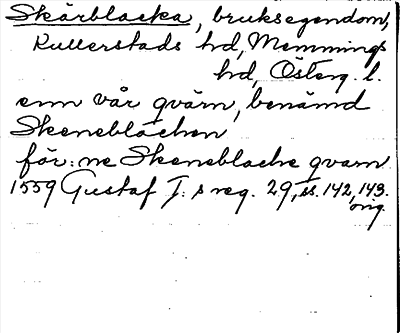 Skärblacka, bruksegendom,
Kullerstads hd, Memmings
hd, Österg. l.
enn vår qvärn, benämd
Skeneblachen
för:ne Skeneblache qvarn
1559 Gustaf I:s reg. 29, ss. 142, 143.
orig.